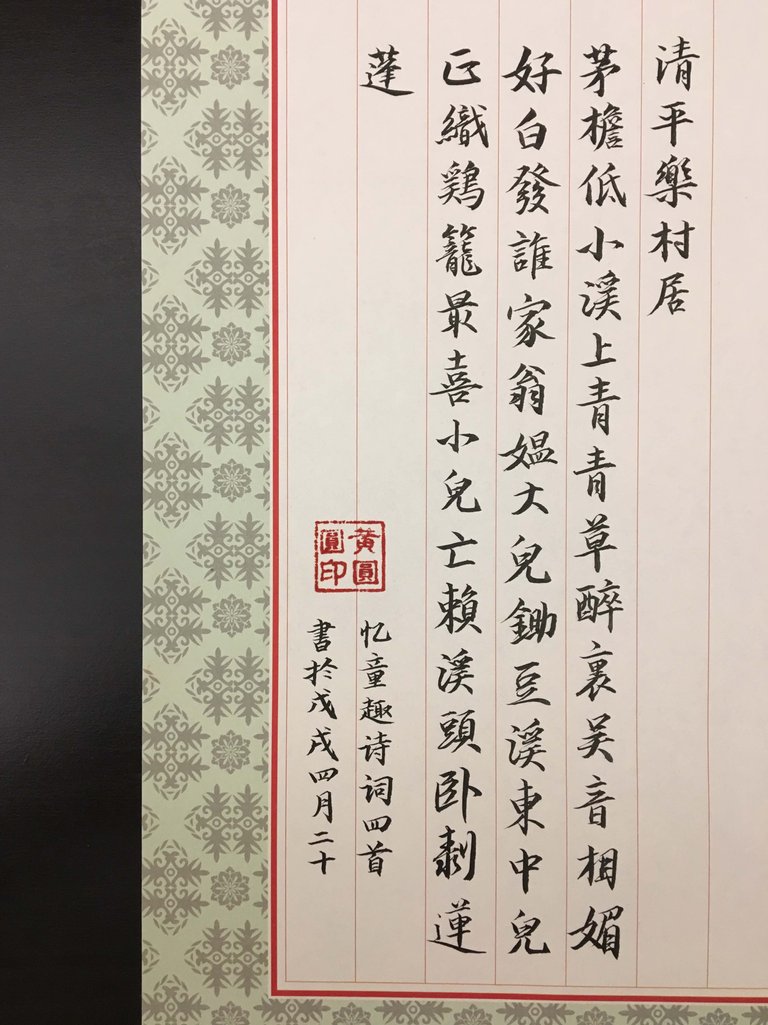 清平樂村居
茅檐低小溪上青青草醉裏吴音相媚
好白發誰家翁媼大兒鋤豆溪東中兒
正織鷄籠最喜小兒亡賴溪頭卧剥蓮
蓬
忆童趣诗词四首
書於戊戌四月二十
黄圓圓印